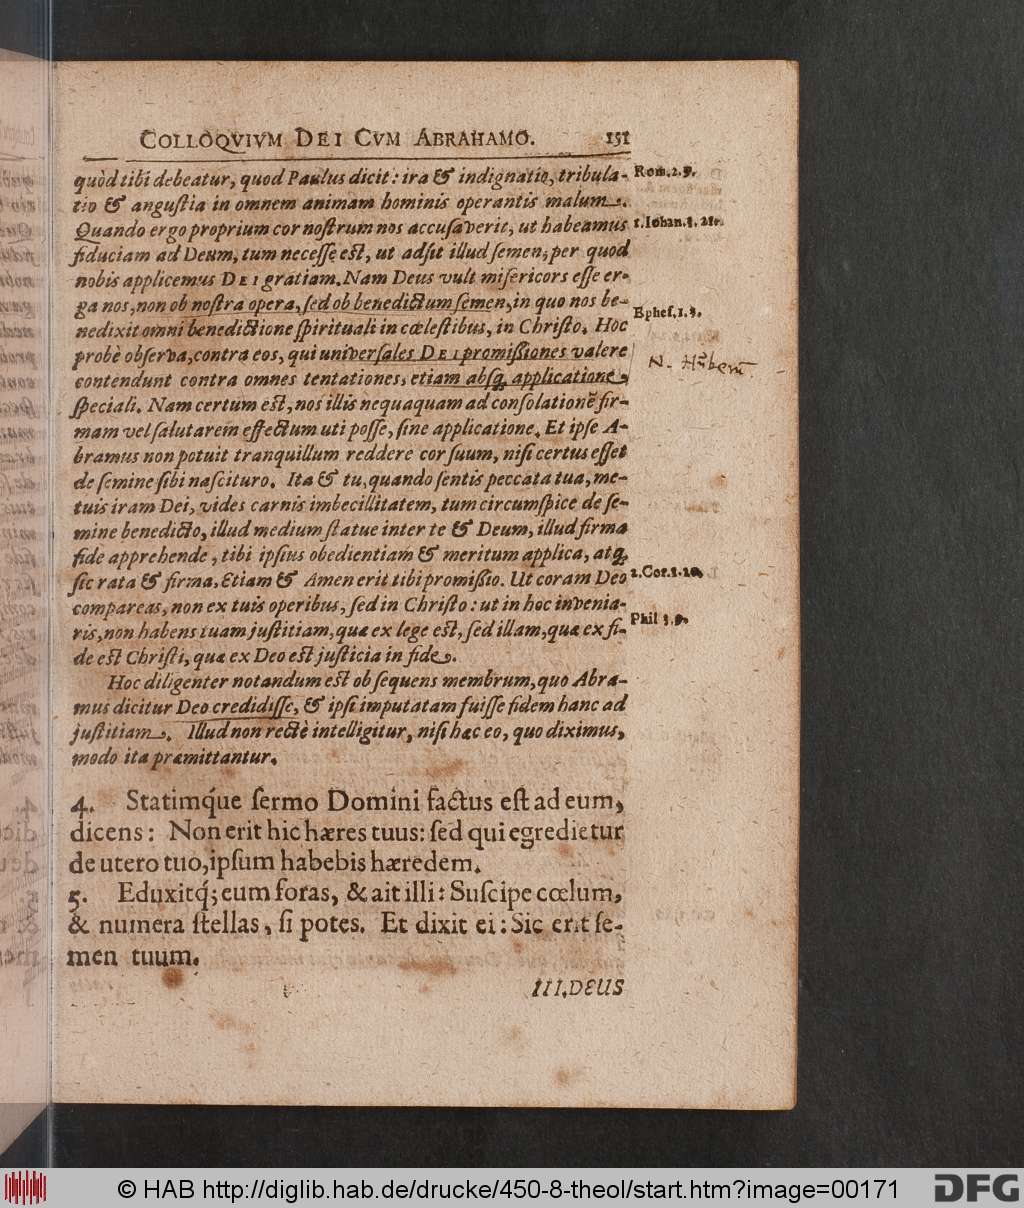 COLLOQVIVM DEI CVM ABRAHAMO. 151
quòd tibi debeatur, quod Paulus dicit: ira & indignatio, tribula-
Rom. 2. 9.
tio & anguſtia in omnem animam hominis operantis malum.
Quando ergo proprium cor noſtrum nos accuſaverit, ut habeamus
1. Iohan. 3. 21.
fiduciam ad Deum, tum neceſſe eſt, ut adſit illud ſemen, per quod
nobis applicemus DEI gratiam. Nam Deus vult miſericors eſſe er-
ga nos, non ob noſtra opera, ſed ob benedictum ſemen, in quo nos be-
nedixit omni benedictione ſpirituali in cœleſtibus, in Chriſto. Hoc
Epheſ. 1. 3.
probè obſerva, contra eos, qui univerſales DEI promiſſiones valere
contendunt contra omnes tentationes, etiam abſq́ applicatione
N. Hŭberŭ.
ſpeciali. Nam certum eſt, nos illis nequaquam ad conſolationẽ fir-
mam vel ſalutarem effectum uti poſſe, ſine applicatione. Et ipſe A-
bramus non potuit tranquillum reddere cor ſuum, niſi certus eſſet
de ſemine ſibi naſcituro. Ita & tu, quando ſentis peccata tua, me-
tuis iram Dei, vides carnis imbecillitatem, tum circumſpice de ſe-
mine benedicto, illud medium ſtatue inter te & Deum, illud firma
fide apprehende, tibi ipſius obedientiam & meritum applica, atq́
ſic rata & firma, Etiam & Amen erit tibi promiſſio. Ut coram Deo
2. Cor. 1. 20.
compareas, non ex tuis operibus, ſed in Chriſto: ut in hoc invenia-
ris, non habens tuam juſtitiam, quæ ex lege eſt, ſed illam, quæ ex fi-
Phil 3. 9.
de eſt Chriſti, quæ ex Deo eſt juſticia in fide.
Hoc diligenter notandum eſt ob ſequens membrum, quo Abra-
mus dicitur Deo credidiſſe, & ipſi imputatam fuiſſe fidem hanc ad
juſtitiam. Illud non rectè intelligitur, niſi hæc eo, quo diximus,
modo ita præmittantur.
4. Statimq́ue ſermo Domini factus eſt ad eum,
dicens: Non erit hic hæres tuus: ſed qui egredietur
de utero tuo, ipſum habebis hæredem.
5. Eduxitq́; eum foras, & ait illi: Suſcipe cœlum,
& numera ſtellas, ſi potes. Et dixit ei: Sic erit ſe-
men tuum.
III. DEUS
© HAB http://diglib.hab.de/drucke/450-8-theol/start.htm?image=00171
DFG